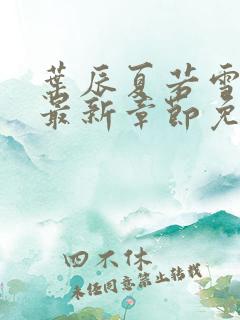 葉辰夏若雪
最新章節免
四不休
未经同意禁止转载